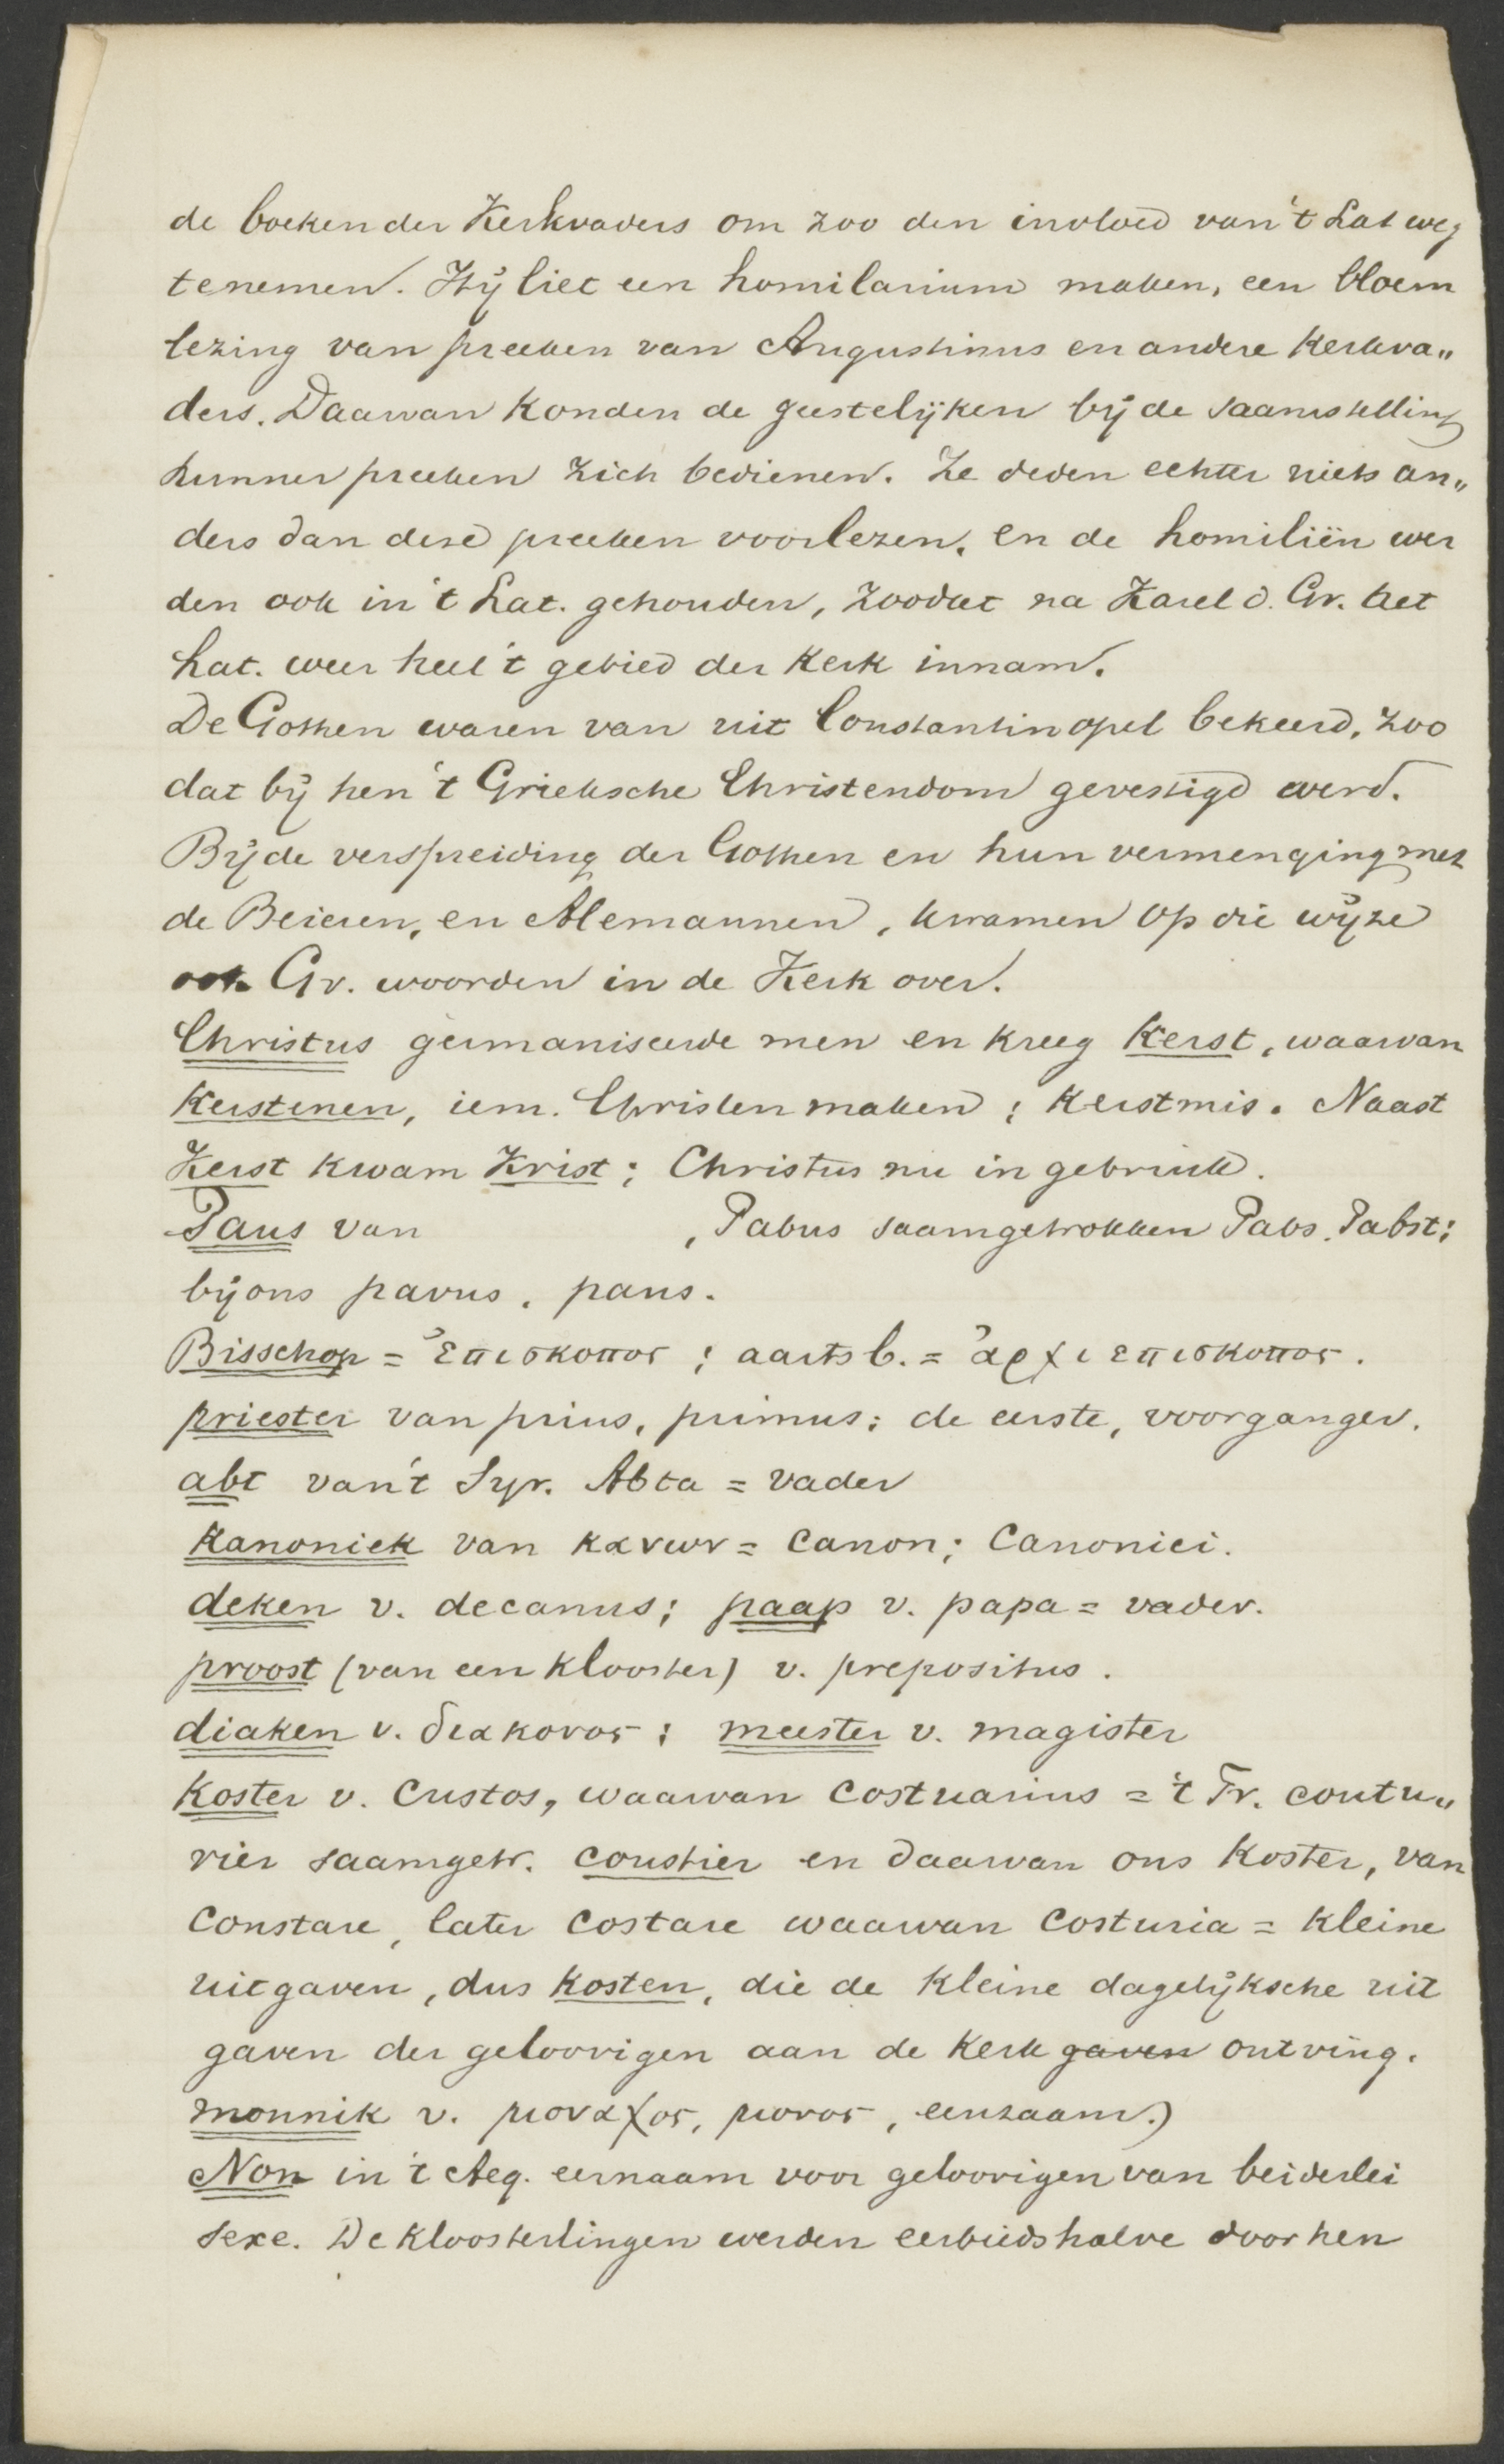 de boeken der Kerkvaders om zoo den invloed van 't Lat weg
te nemen. Hij liet een homilarium maken, een bloem
lezing van preeken van Augustinus en andere Kerkva„
ders. Daarvan konden de geestelijken bij de saamstelling
hunner preeken zich bedienen. Ze deden echter niets an„
ders dan dese preeken voorlezen, en de homiliën wer
den ook in 't Lat. gehouden, zoodat na Karel d. Gr. het
Lat. weer heel 't gebied der Kerk innam.
De Gothen waren van uit Constantinopel bekeerd, zoo
dat bij hen 't Grieksche Christendom gevestigd werd.
Bij de verspreiding der Gothen en hun vermenging met
de Beieren, en Alemannen, kwamen op die wijze
ook Gr. woorden in de Kerk over.
Christus germaniseerde men en kreeg Kerst, waarvan
Kerstenen, iem. Christen maken; Kerstmis. Naast
Kerst kwam Krist; Christus nu in gebruik.
Paus van , Pabus saamgetrokken Pabs. Pabst;
bij ons pavus, paus.
Bisschop = ἐπισκοπος; aartsb. = ἀρχιεπισκοπος.
priester van prius, primus; de eerste, voorganger.
abt van 't Syr. Abta = vader
Kanoniek van κανων = Canon; Canonici.
deken v. decanus; paap v. papa = vader.
proost (van een klooster) v. prepositus.
diaken v. διακονος; meester v. magister
Koster v. Custos, waarvan Costuarius = 't Fr. coutu„
rier saamgetr. coustier en daarvan ons Koster, van
Constare, later costare waarvan Costuria = kleine
uitgaven, dus kosten, die de kleine dagelijksche uit
gaven der geloovigen aan de Kerk gaven ontving.
monnik v. μοναχος, μονος, eenzaam.)
Non in 't Aeg. eernaam voor geloovigen van beiderlei
sexe. De kloosterlingen werden eerbiedshalve door hen